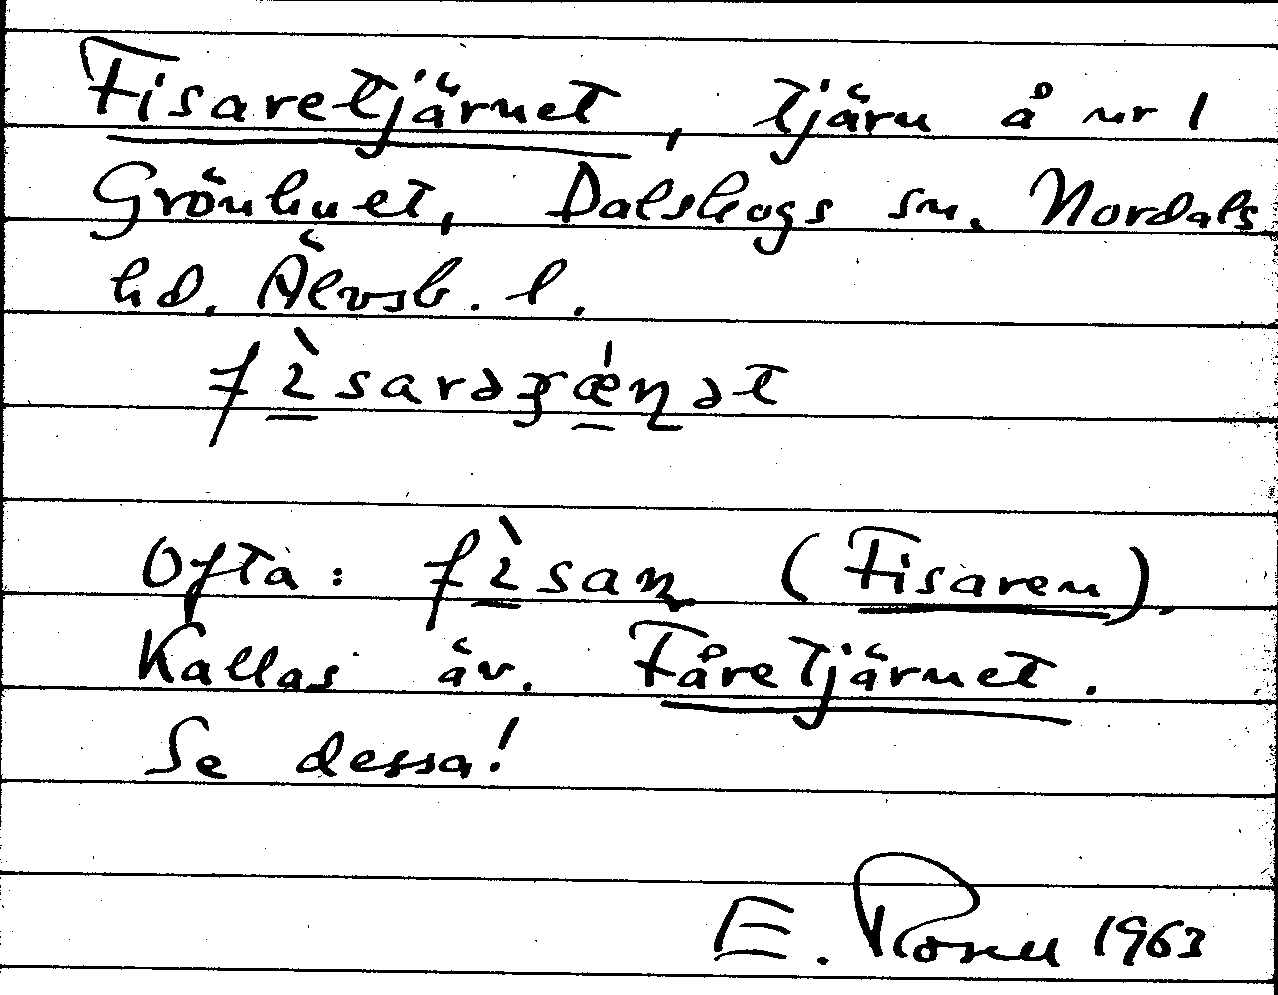 Fisaretjärnet, tjärn å nr 1
Grönhuet, Dalskogs sn. Nordals
hd. Älvsb. l.
fìsarəʒǽɳət
Ofta: fìsaɳ (Fisaren).
Kallas äv. Fåretjärnet.
Se dessa!
E. Rosell 1963